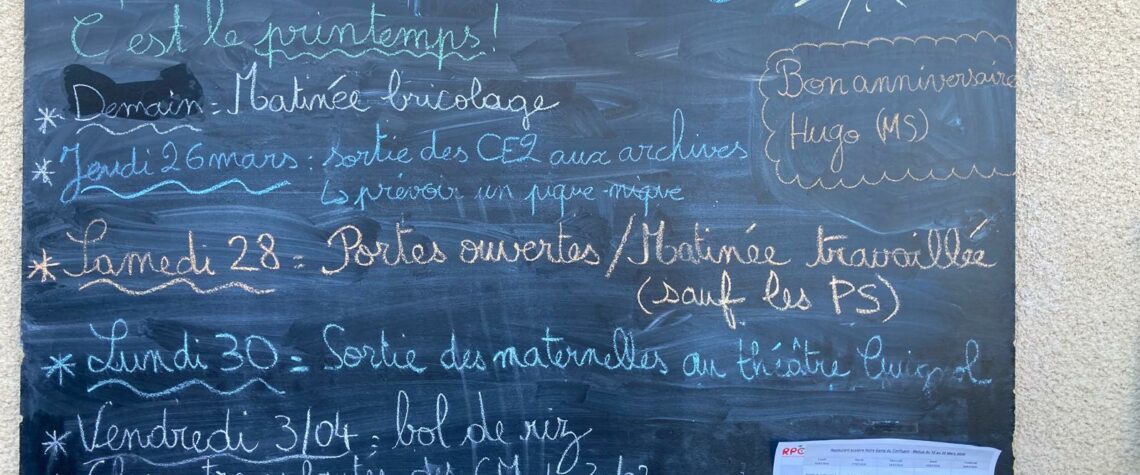 C'est le printemps !
* Demain = Matinée bricolage
Bon anniversaire
Hugo (MS)
* Jeudi 26 mars : sortie des CE2 aux archives
↳ prévoir un pique-nique
* Samedi 28 = Portes ouvertes / Matinée travaillée
(sauf les PS)
* Lundi 30 = Sortie des maternelles au théâtre Guignol
* Vendredi 3/04 = bol de riz
RPC